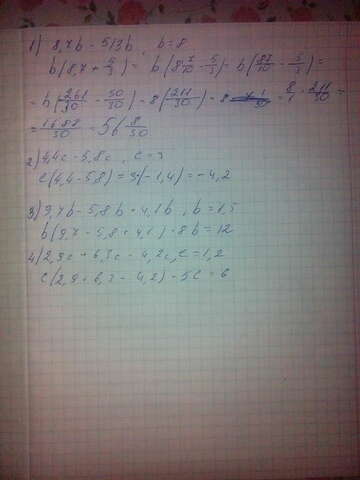 1) 8,7b - 5/3b, b=8
b(8,7 + 5/3) = b(8 7/10 - 5/3) = b(87/10 - 5/3) =
= b(261/30 - 50/30) = 8(211/30) = 8 = 8/1 · 211/30 =
= 1688/30 = 56 8/30
2) 4,4c - 5,8c, c=3
c(4,4-5,8) = 3·(-1,4) = -4,2
3) 9,7b - 5,8b + 4,1b, b=1,5
b(9,7 - 5,8 + 4,1) = 8b = 12
4) 2,9c + 6,3c - 4,2c, c=1,2
c(2,9 + 6,3 - 4,2) = 5c = 6